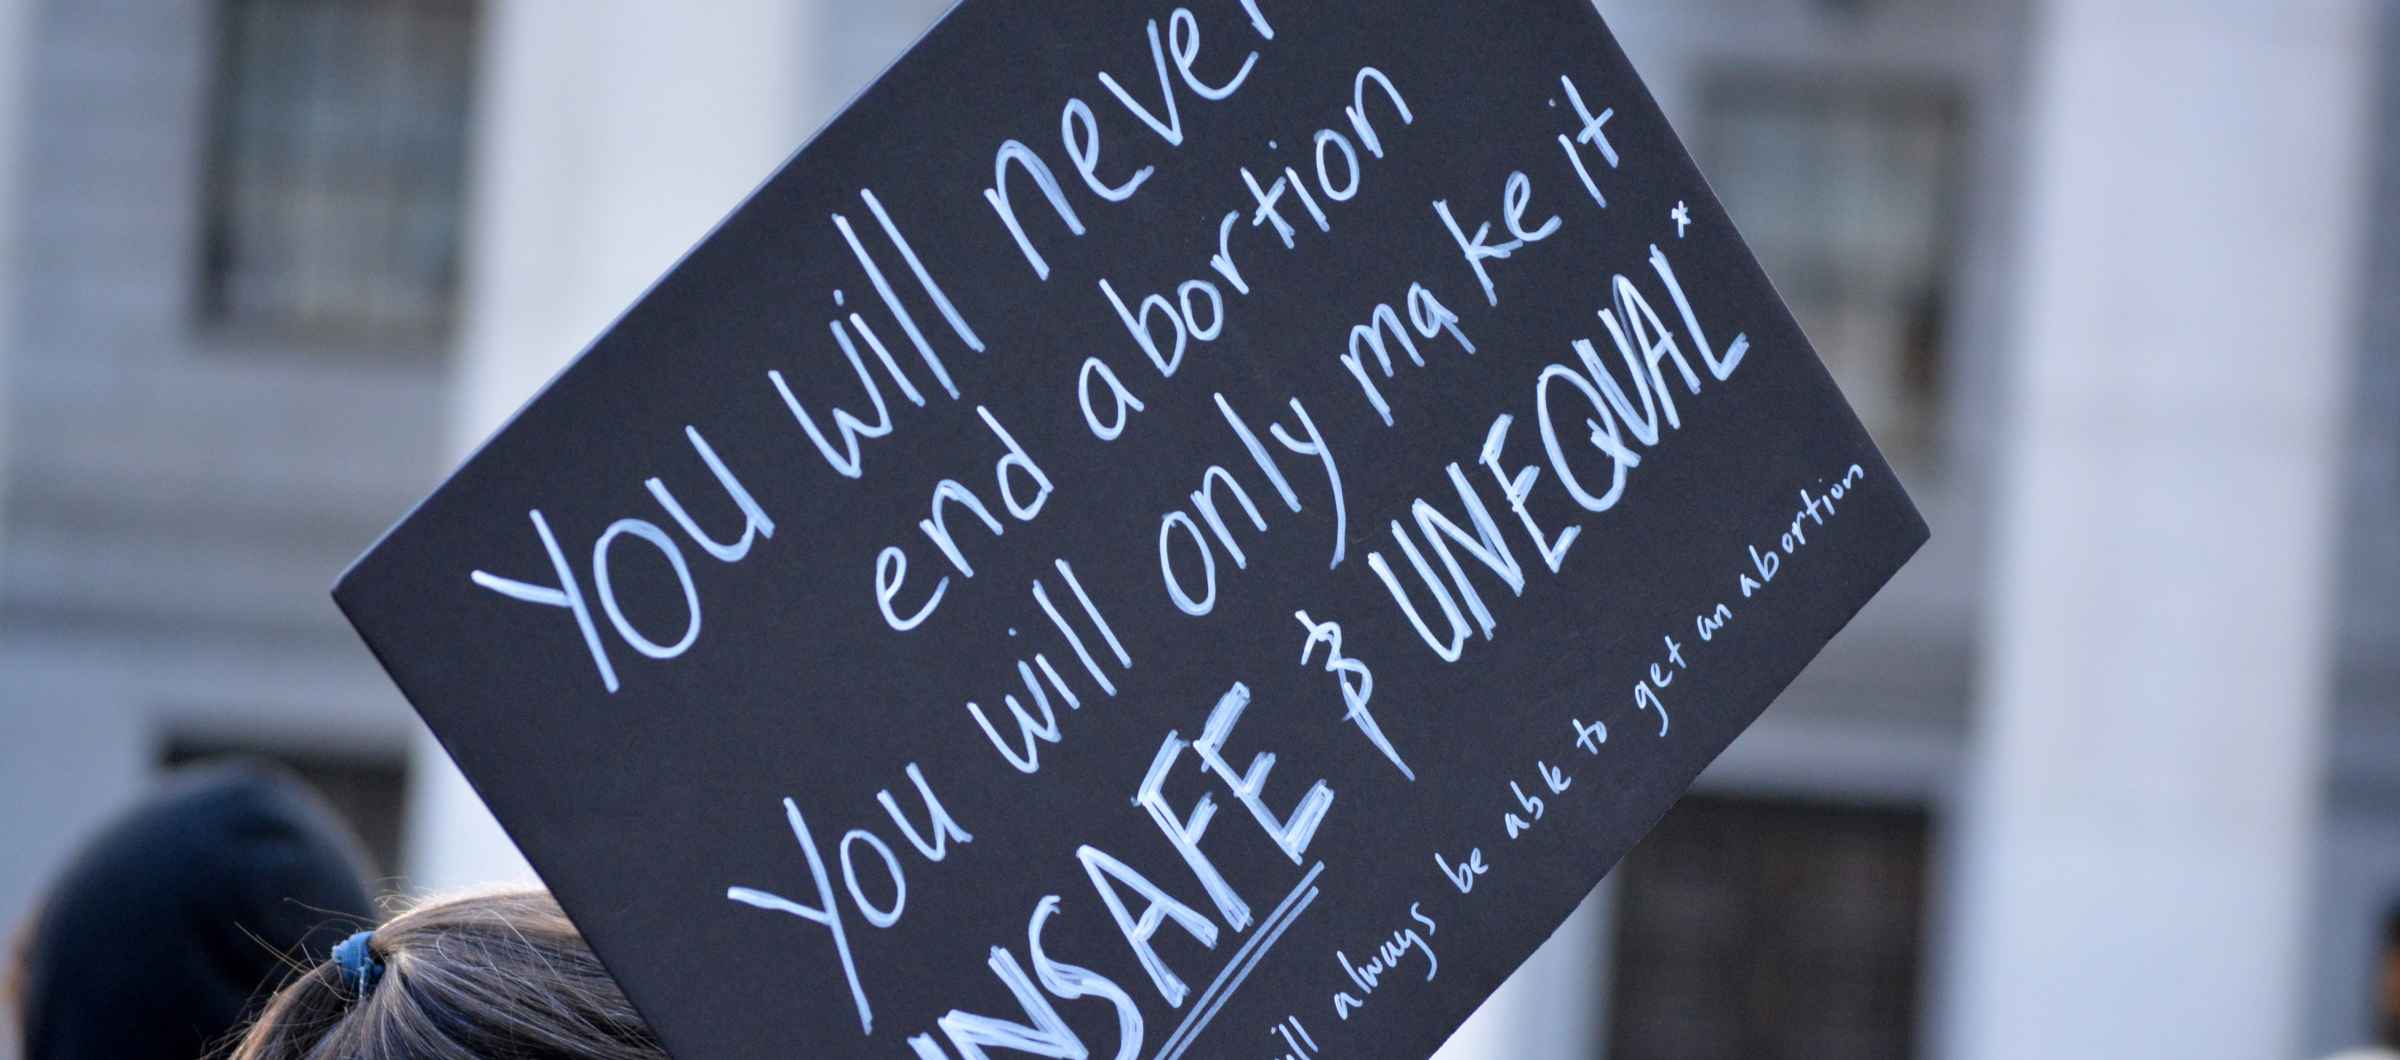 You will never
end abortion
You will only make it
UNSAFE & UNEQUAL*
will always be able to get an abortion